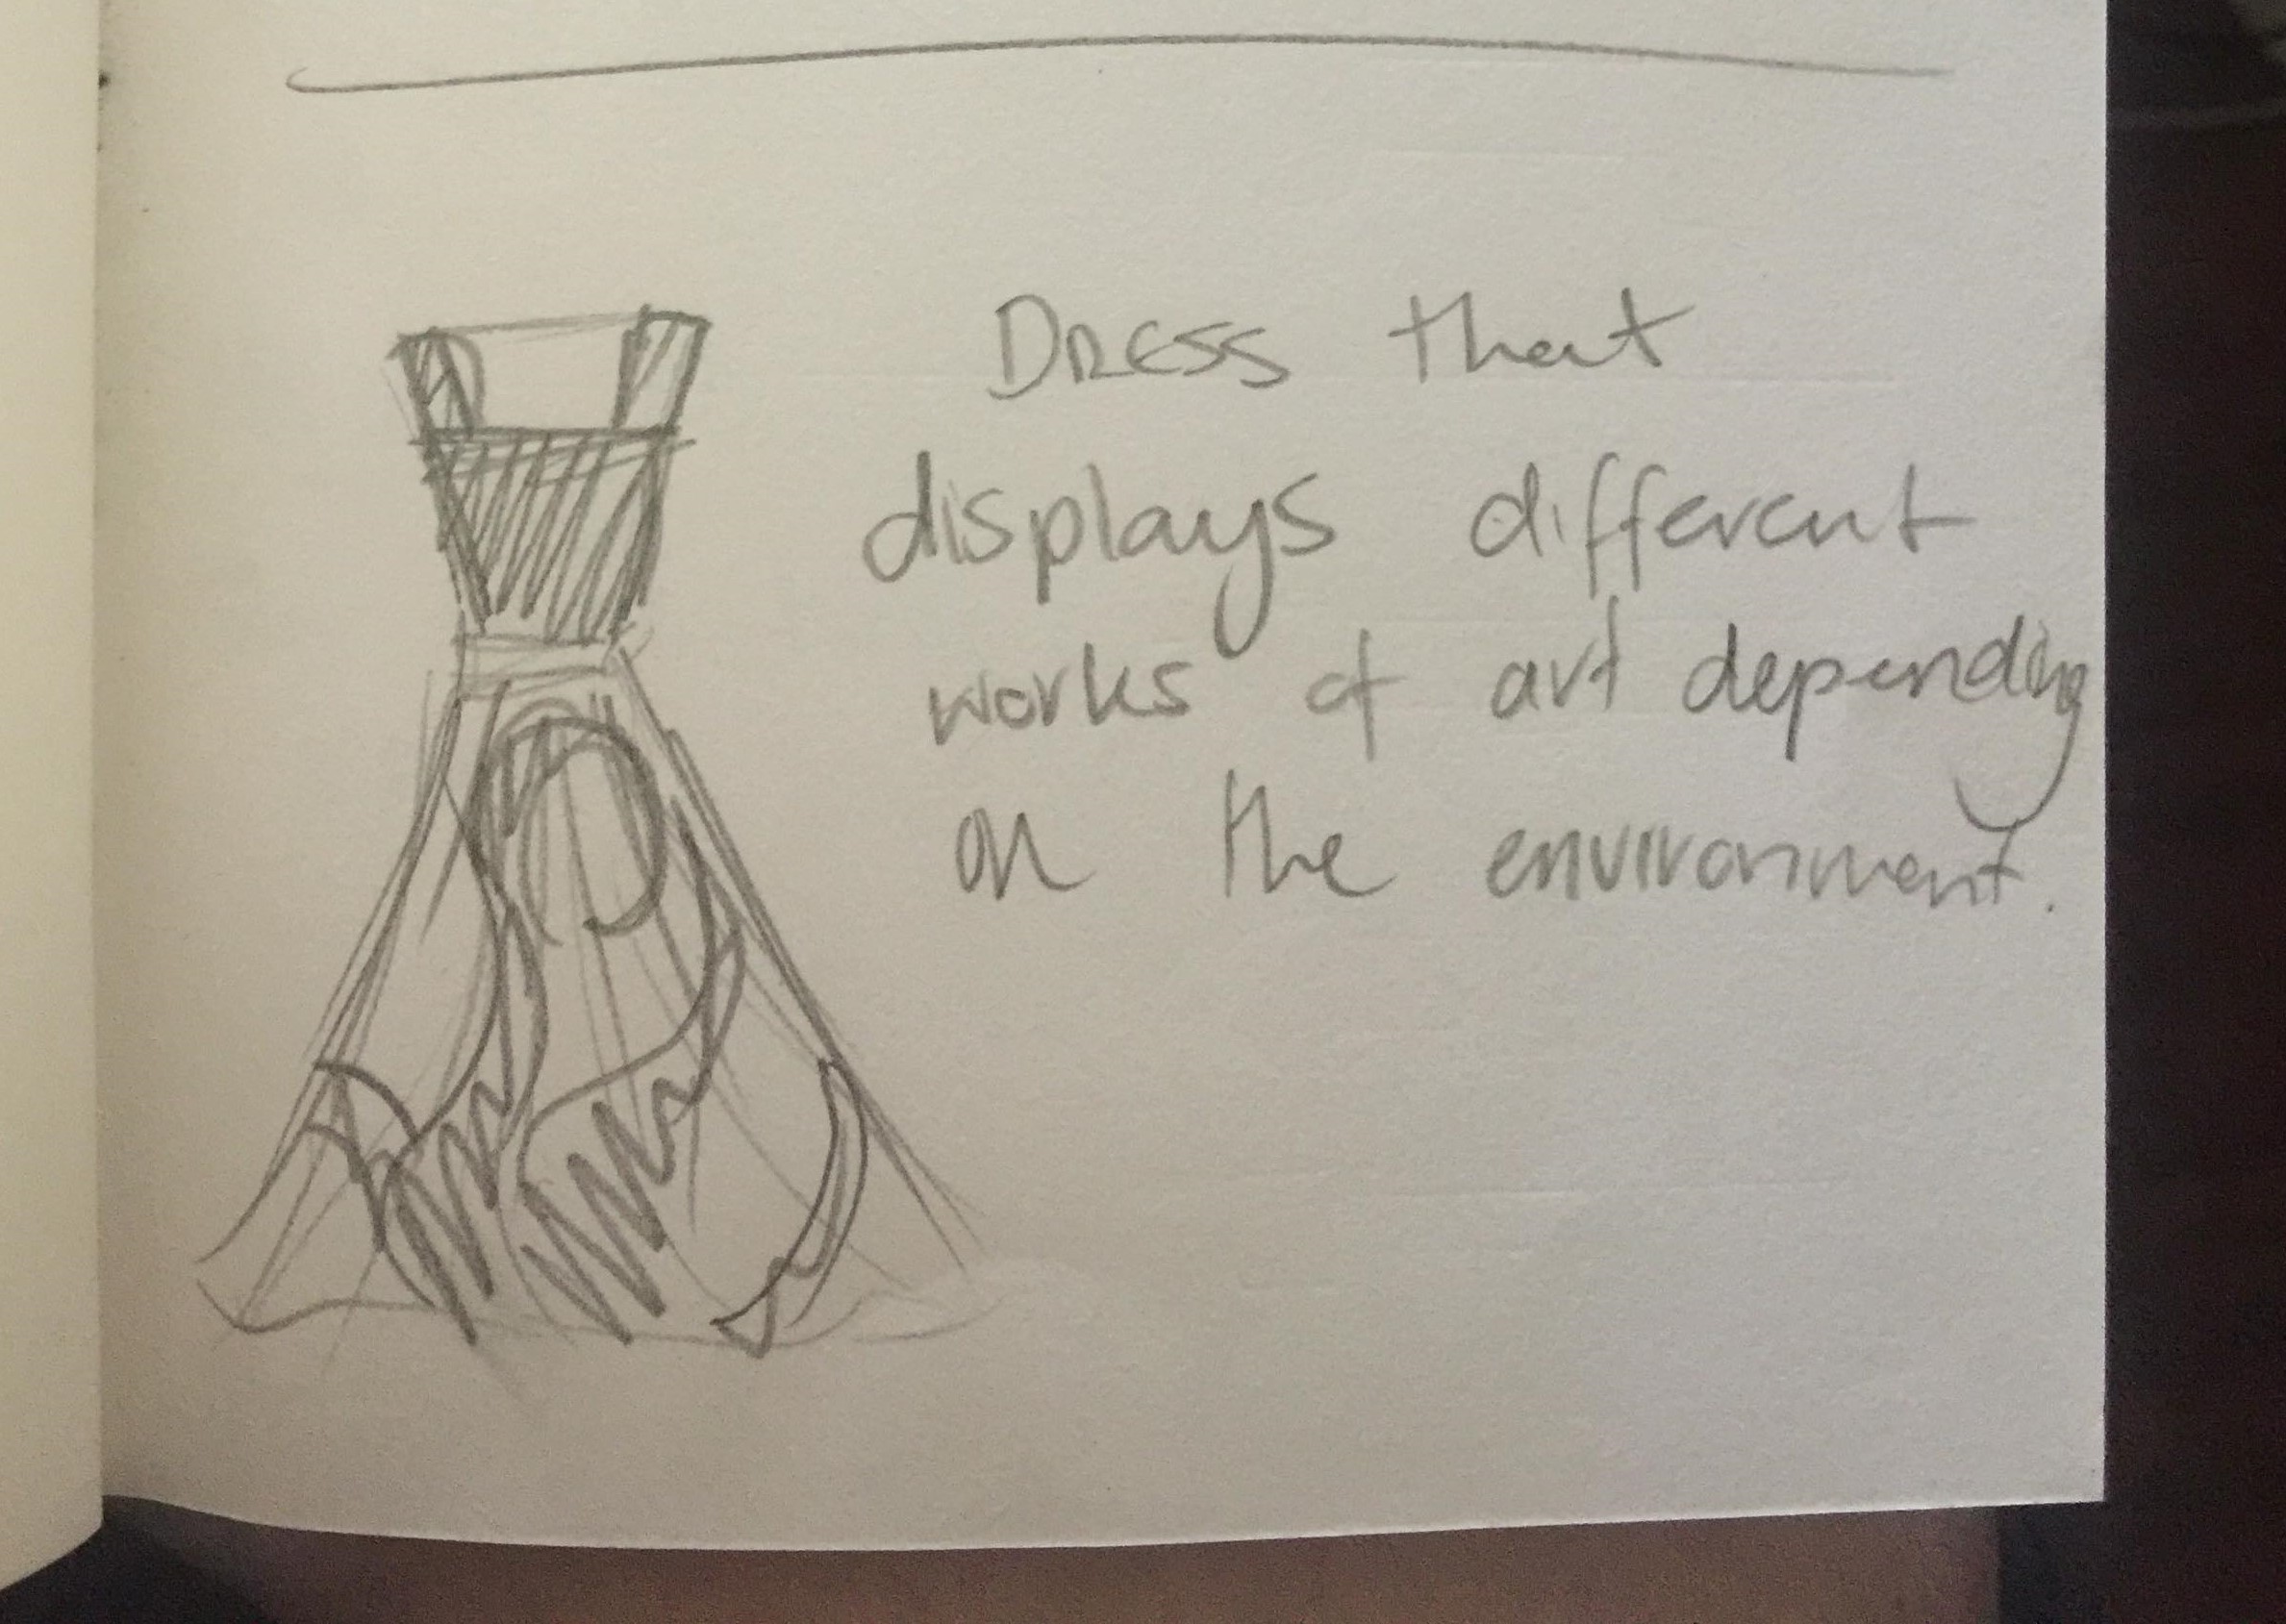 DRESS that
displays different
works of art depending
on the environment.